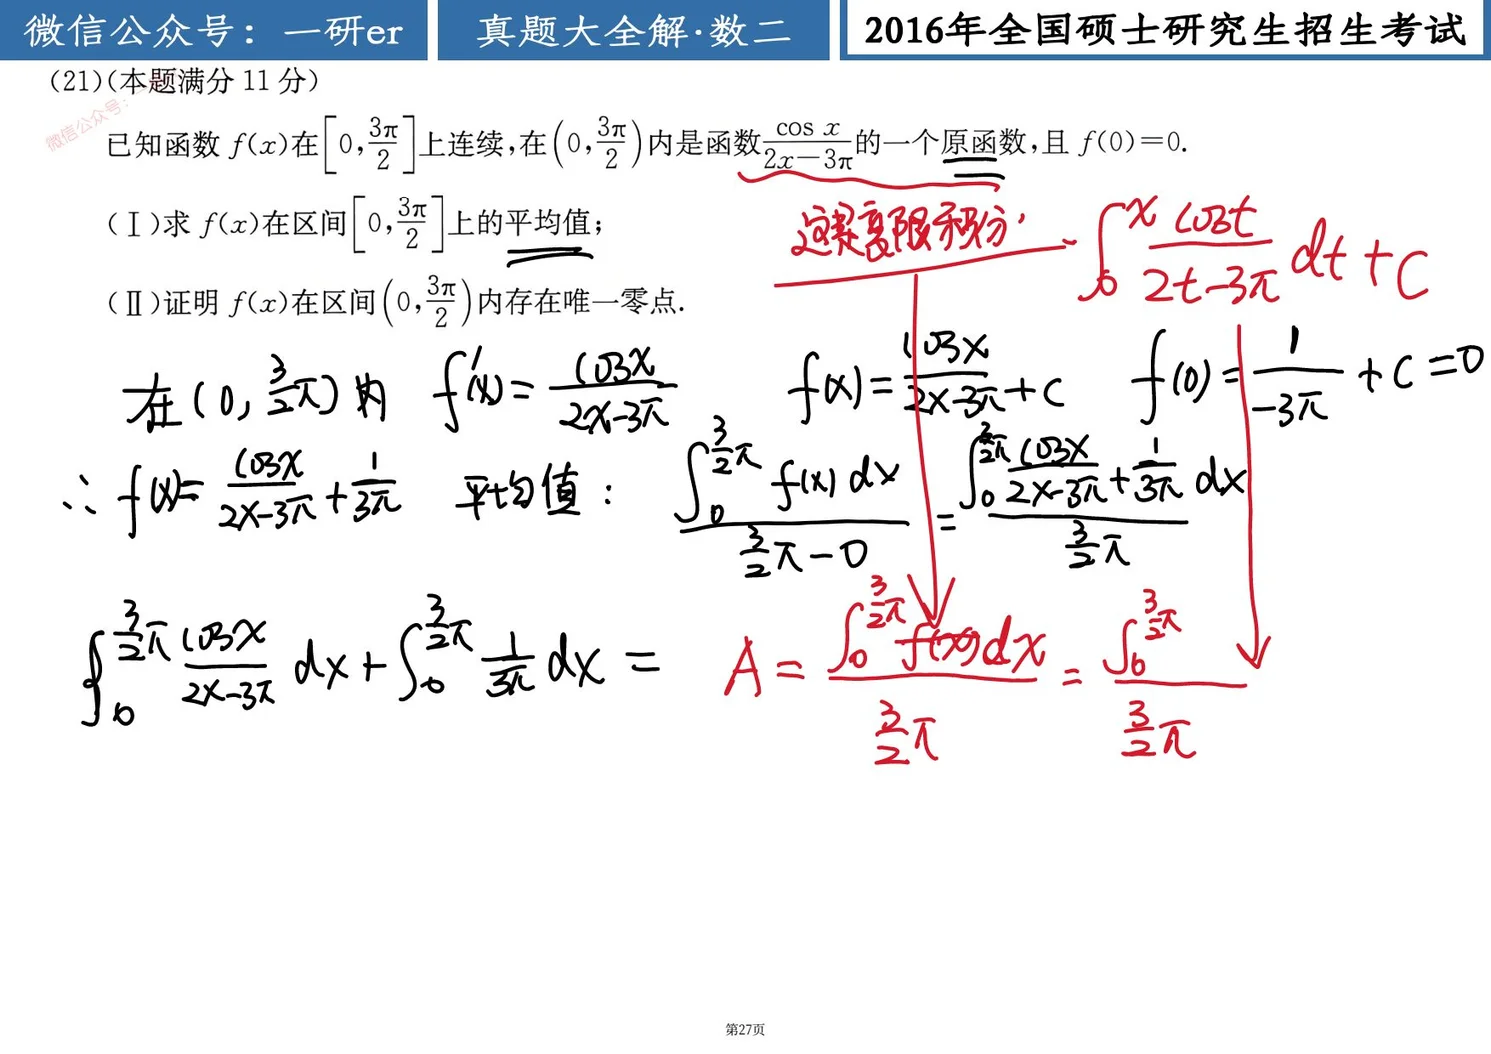 微信公众号：一研er
真题大全解·数二
2016年全国硕士研究生招生考试
(21)(本题满分 11 分)
微信公众号：
已知函数 f(x)在[0,3π/2]上连续,在(0,3π/2)内是函数cos x/(2x-3π)的一个原函数,且 f(0)=0.
(Ⅰ)求 f(x)在区间[0,3π/2]上的平均值;
(Ⅱ)证明 f(x)在区间(0,3π/2)内存在唯一零点.
这是变限积分, ∫₀ˣ cost/(2t-3π) dt + C
在(0, 3/2π)内 f'(x)= cosx/(2x-3π) f(x)= cosx/(2x-3π) + C f(0)= 1/(-3π) + C = 0
∴ f(x)= cosx/(2x-3π) + 1/(3π) 平均值: ∫₀^(3/2π) f(x) dx / (3/2π - 0) = ∫₀^(3/2π) cosx/(2x-3π) + 1/(3π) dx / (3/2π)
∫₀^(3/2π) cosx/(2x-3π) dx + ∫₀^(3/2π) 1/(3π) dx =
A = ∫₀^(3/2π) f(x) dx / (3/2π) = ∫₀^(3/2π) / (3/2π)
第27页